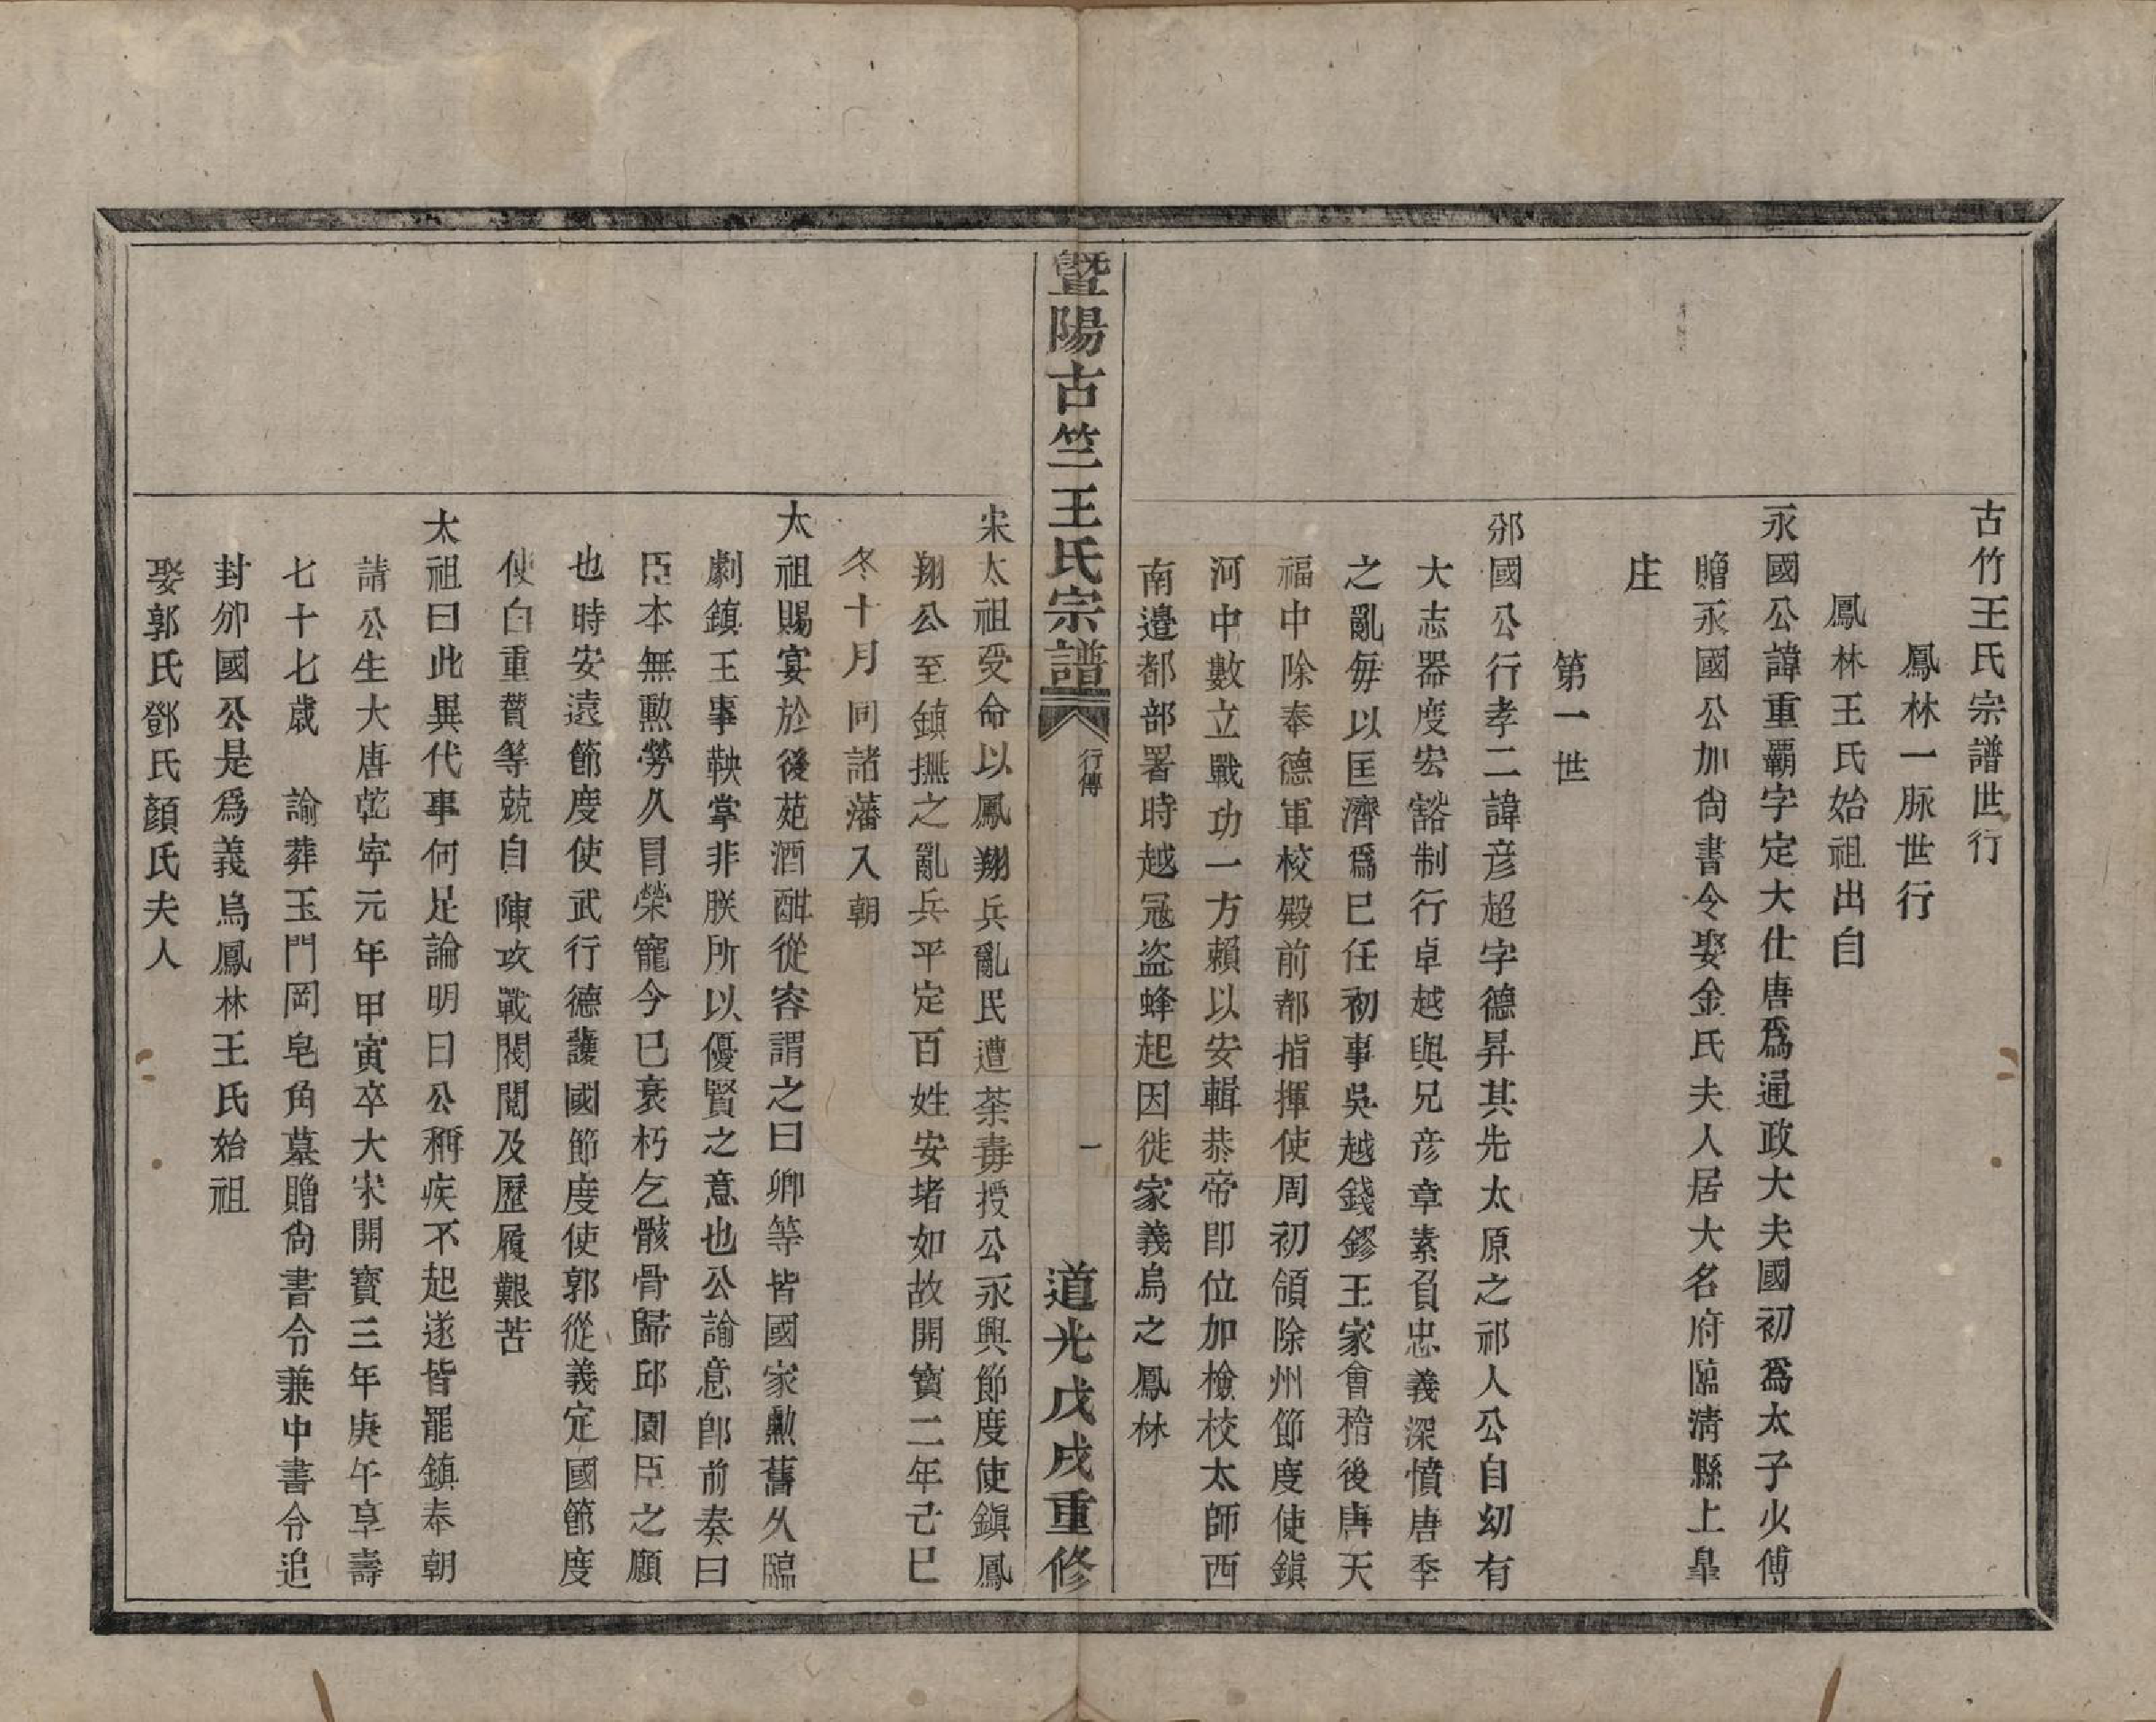 古竹王氏宗譜世行
鳳林一脉世行
鳳林王氏始祖出自
永國公諱重霸字定大仕唐爲通政大夫國初爲太子火傅
贈永國公加尙書令娶金氏夫人居大名府臨清縣上皐
庄
第一世
邠國公行孝二諱彦超字德昇其先太原之祁人公自幼有
大志器度宏豁制行卓越與兄彦章素負忠義深憤唐季
之亂每以匡濟爲已任初事吳越錢鏐王家會稽後唐天
福中除奉德軍校殿前都指揮使周初領除州節度使鎭
河中數立戰功一方賴以安輯恭帝即位加檢校太師西
南邉都部署時越冦盜蜂起因徙家義烏之鳳林
暨陽古竺王氏宗譜
行傳
一
道光戊戌重修
宋太祖受命以鳳翔兵亂民遭荼毒授公永興節度使鎭鳳
翔公至鎮撫之亂兵平定百姓安堵如故開寳二年己巳
冬十月同諸藩入朝
太祖賜宴於後苑酒酣從容謂之曰卿等皆國家勲舊久臨
劇鎮王事鞅掌非朕所以優賢之意也公諭意即前奏曰
臣本無勲勞久冒榮寵今已衰朽乞骸骨歸邱園臣之願
也時安遠節度使武行德護國節度使郭從義定國節度
使白重贊等兢自陳攻戰閥閱及歷履艱苦
太祖曰此異代事何足論明日公稱疾不起遂皆罷鎮奉朝
請公生大唐乾寕元年甲寅卒大宋開寳三年庚午享壽
七十七歲　諭葬玉門岡皂角墓贈尙書令兼中書令追
封邠國公是爲義烏鳳林王氏始祖
娶郭氏鄧氏顔氏夫人